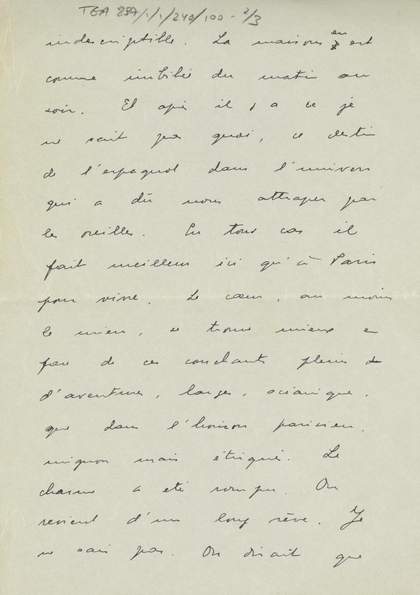 TGA 884/1/1/240/100 - 2/3
indescriptible. La maison en est
comme imbibée du matin au
soir. Et après il y a ce je
ne sait pas quoi, ce destin
de l'espagnol dans l'univers
qui a dû nous attraper par
les oreilles. En tous cas il
fait meilleur ici qu'à Paris
pour vivre. Le cœur, au moins
le mien, se trouve mieux en
face de ces couchants pleins
d'aventures, larges,
que dans l'horizon parisien,
mignon mais étriqué. Le
charme a été rompu. On
revient d'un long rêve. Je
ne sais pas. On dirait que